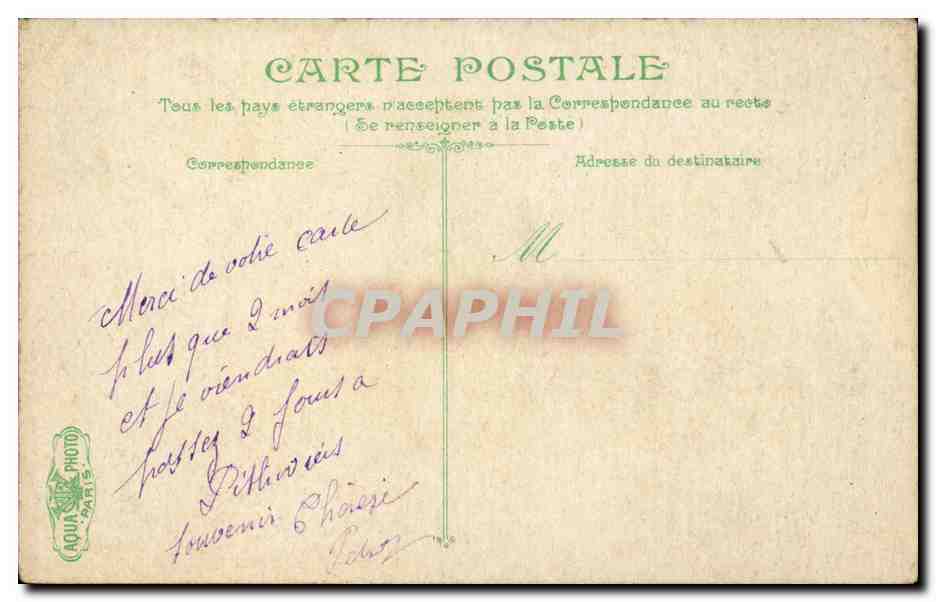 CARTE POSTALE
Tous les pays étrangers n'acceptent pas la Correspondance au recto
(Se renseigner à la Poste)
Correspondance
Adresse du destinataire
M
Merci de votre carte
plus que 2 mois
et je viendrais
passez 2 jours a
Pithiviers
souvenir Thérèse
CPAPHIL
AQUA PHOTO
PARIS